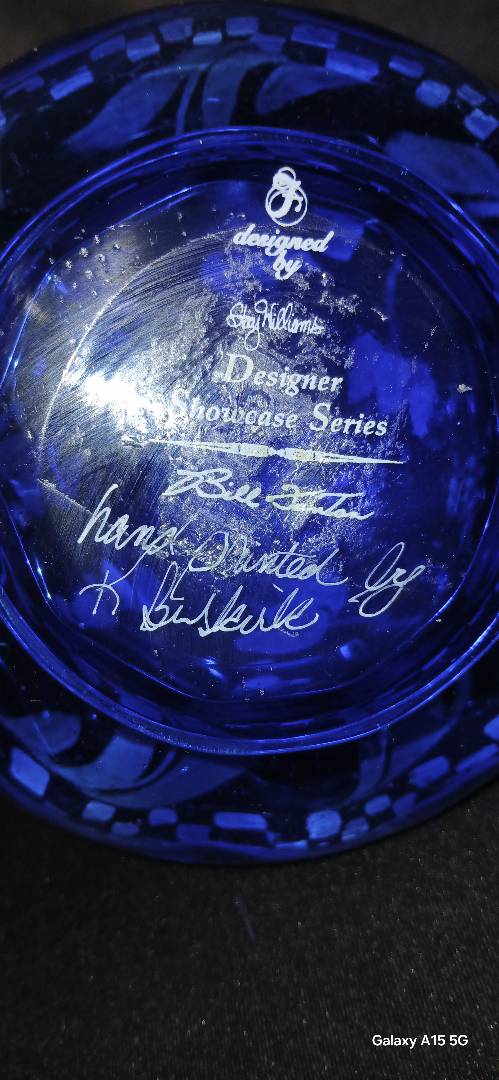 designed
by
Stacy Williams
Designer
Showcase Series
Bill Fenton
hand painted by
K Buskirk
Galaxy A15 5G